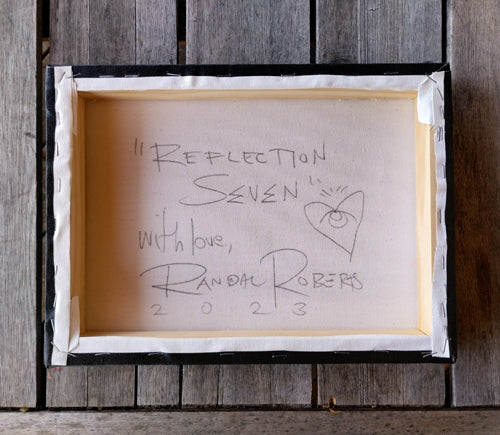 "REFLECTION
SEVEN"
with love,
RANDAL ROBERTS
2023